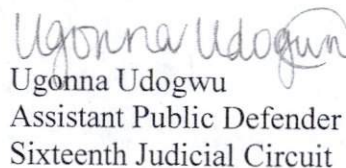 Ugonna Udogwu
Ugonna Udogwu
Assistant Public Defender
Sixteenth Judicial Circuit